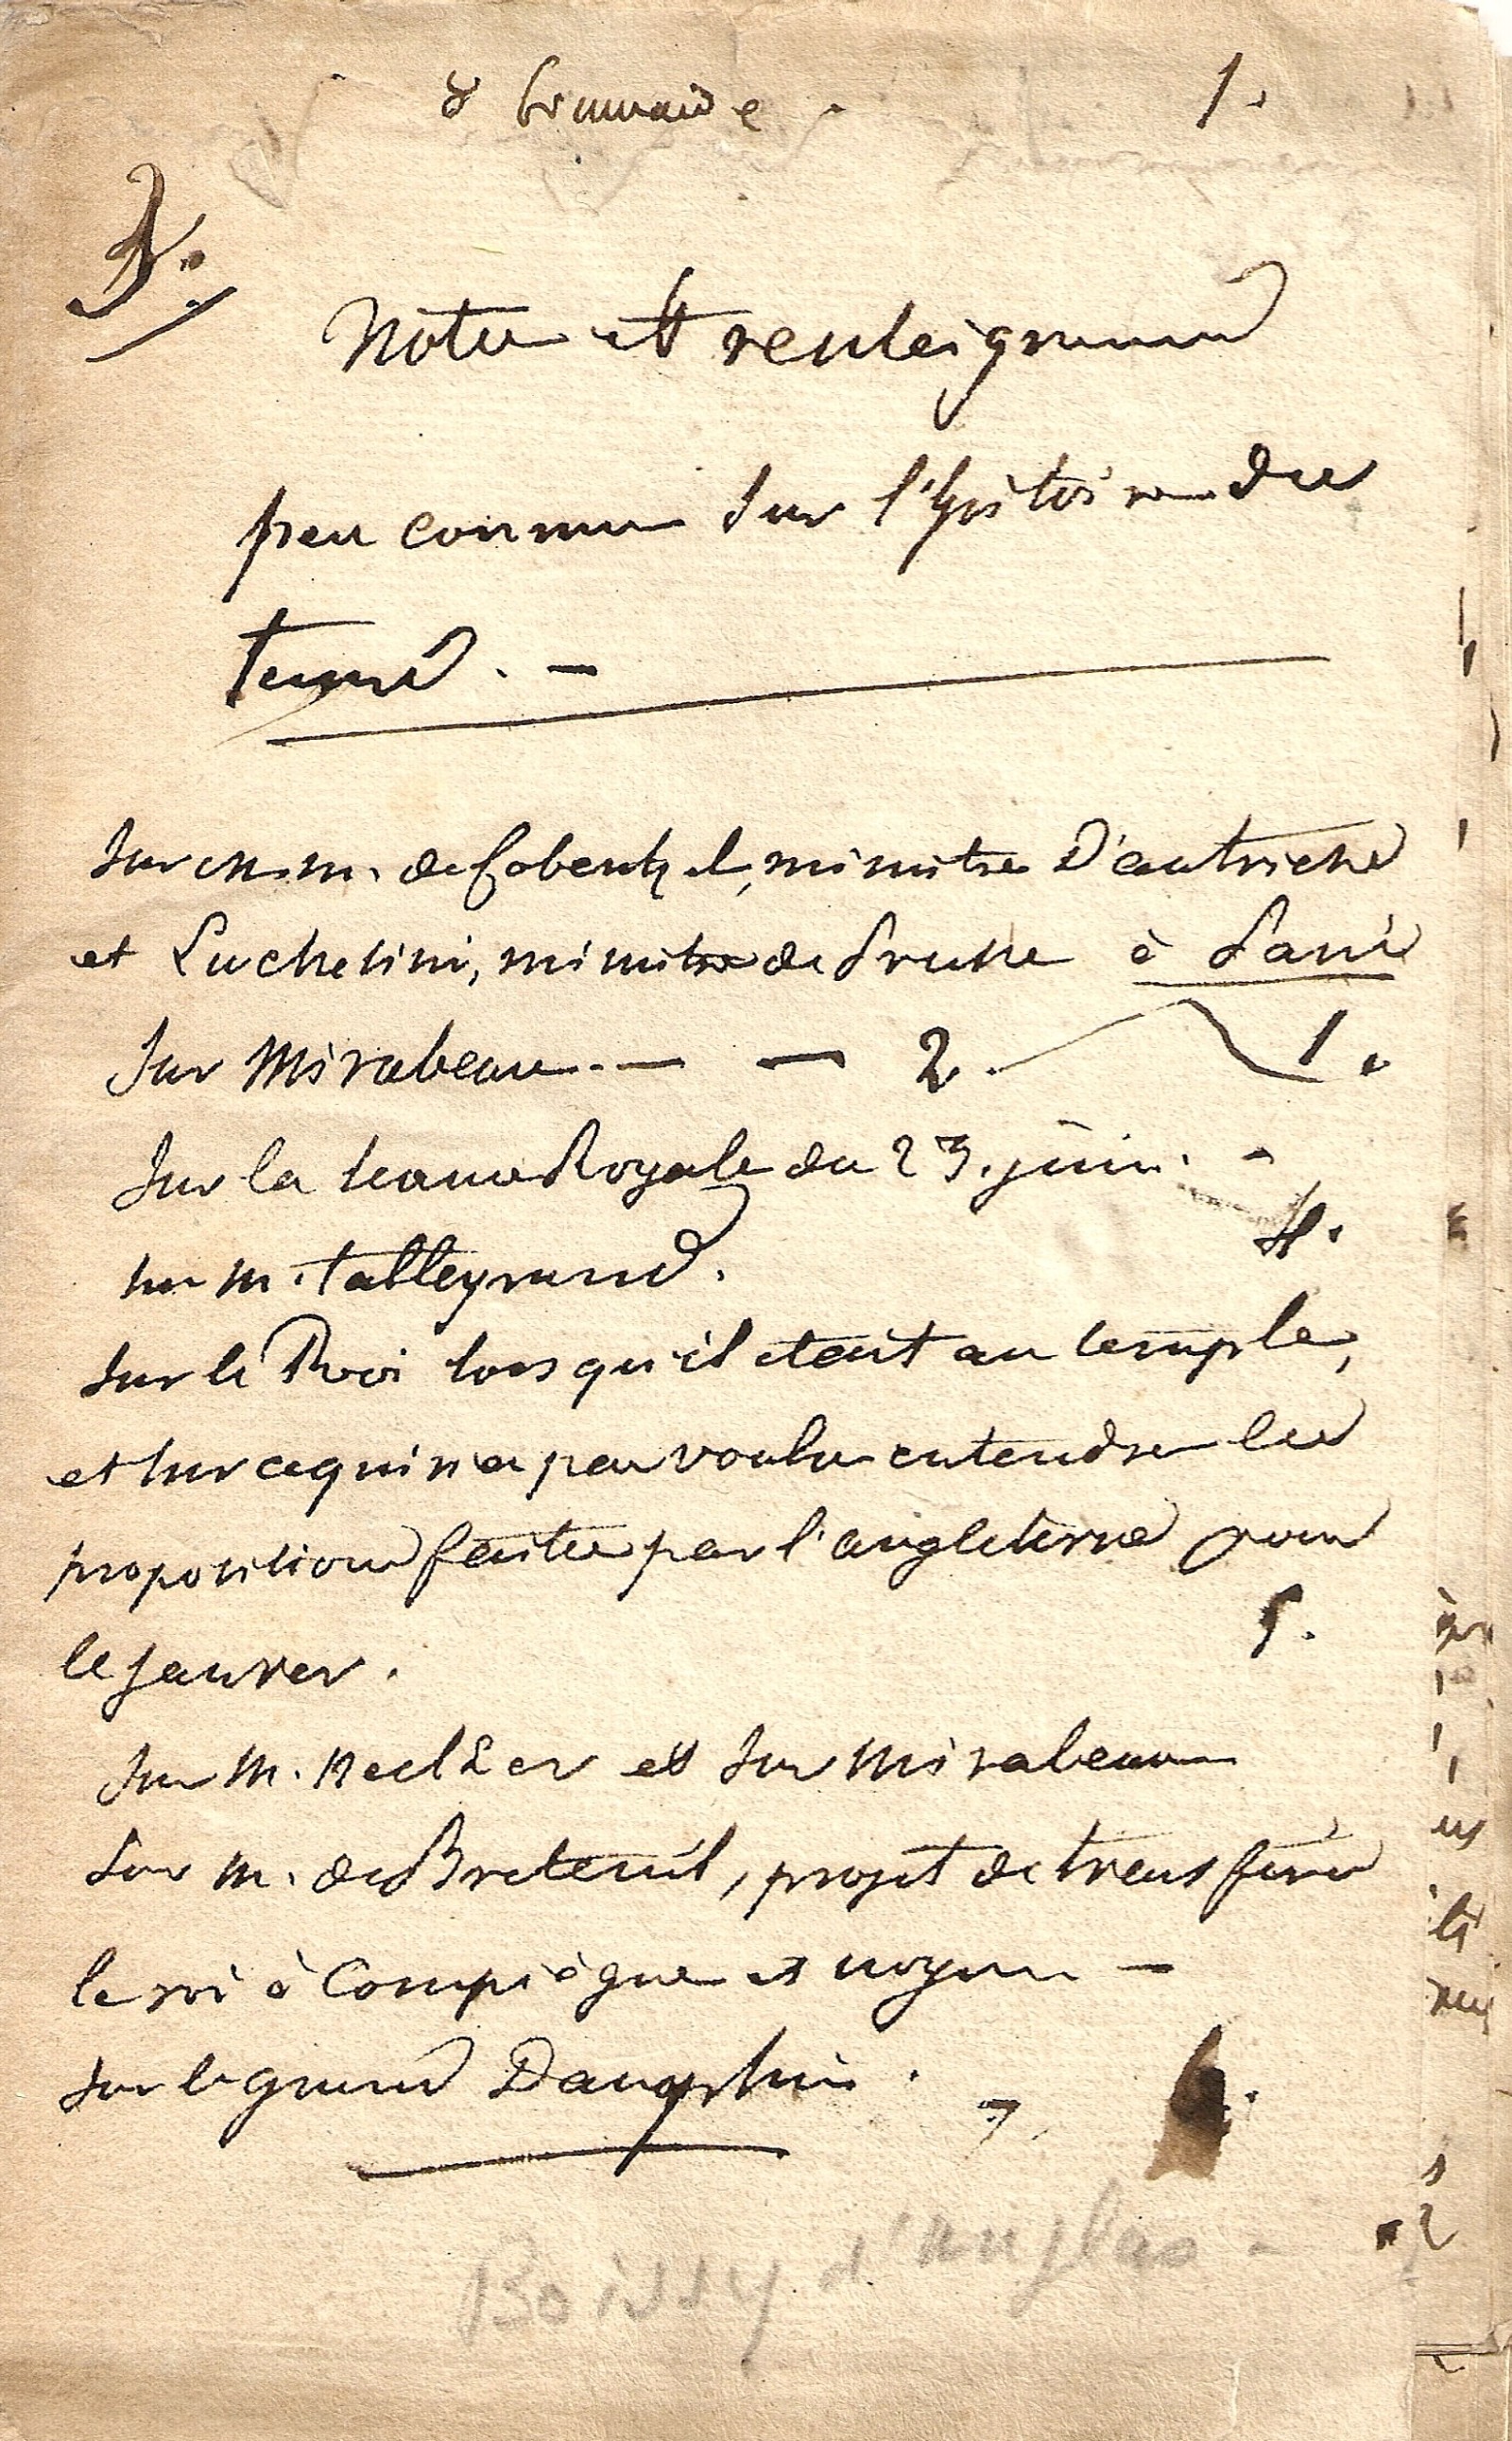 8 brumaire 1.
3.
Notes et renseignemens
peu connus sur l'histoire du
tems. —
Sur M.M. de Cobentzel, ministre d'autriche
et Luchesini, ministre de Prusse à Paris
1.
Sur Mirabeau. — — 2.
Sur la seance Royale du 23. juin. -
4.
sur M. talleyrand.
Sur le Roi lorsqu'il etait au temple,
et sur ce qui n'a pas voulu entendre les
propositions faites par l'angleterre pour
le sauver.
5.
Sur M. Necker et sur Mirabeau
Sur M. de Breteuil, projet de transferer
le roi à Compiègne et noyon —
sur le grand Dauphin.
7. 6.
Boissy d'Anglas -